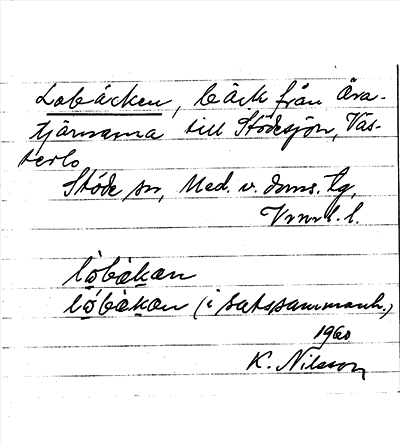 Lobäcken, bäck från Öra-
tjärnarna till Stödesjön, Väs-
terlo
Stöde sn, Med. v. doms. tg,
Vrnrl. l.
lòbäkan
lòbàkan (i satssammanh.)
1960
K. Nilsson